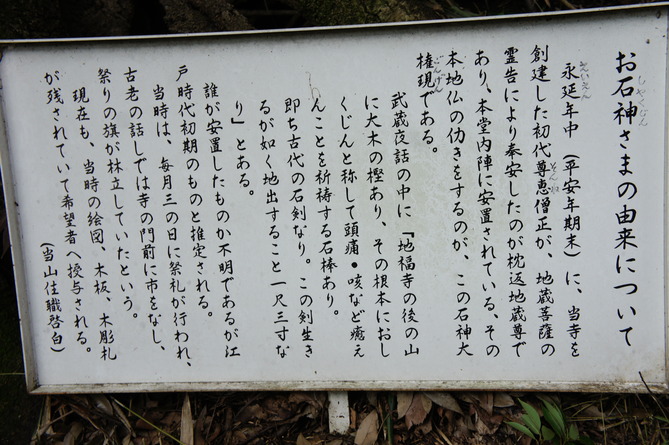 お石神さまの由来について
永延年中（平安年期末）に、当寺を
創建した初代尊恵僧正が、地蔵菩薩の
霊告により奉安したのが枕返地蔵尊で
あり、本堂内陣に安置されている。その
本地仏の仂きをするのが、この石神大
権現である。
武蔵夜話の中に『地福寺の後の山
に大木の樫あり、その根本におし
くじんと称して頭痛・咳など癒え
んことを祈祷する石棒あり。
即ち古代の石剣なり。この剣生き
るが如く地出すること一尺三寸な
り』とある。
誰が安置したものか不明であるが江
戸時代初期のものと推定される。
当時は、毎月三の日に祭礼が行われ、
古老の話しでは寺の門前に市をなし、
祭りの旗が林立していたという。
現在も、当時の絵図、木板、木彫札
が残されていて希望者へ授与される。
（当山住職啓白）